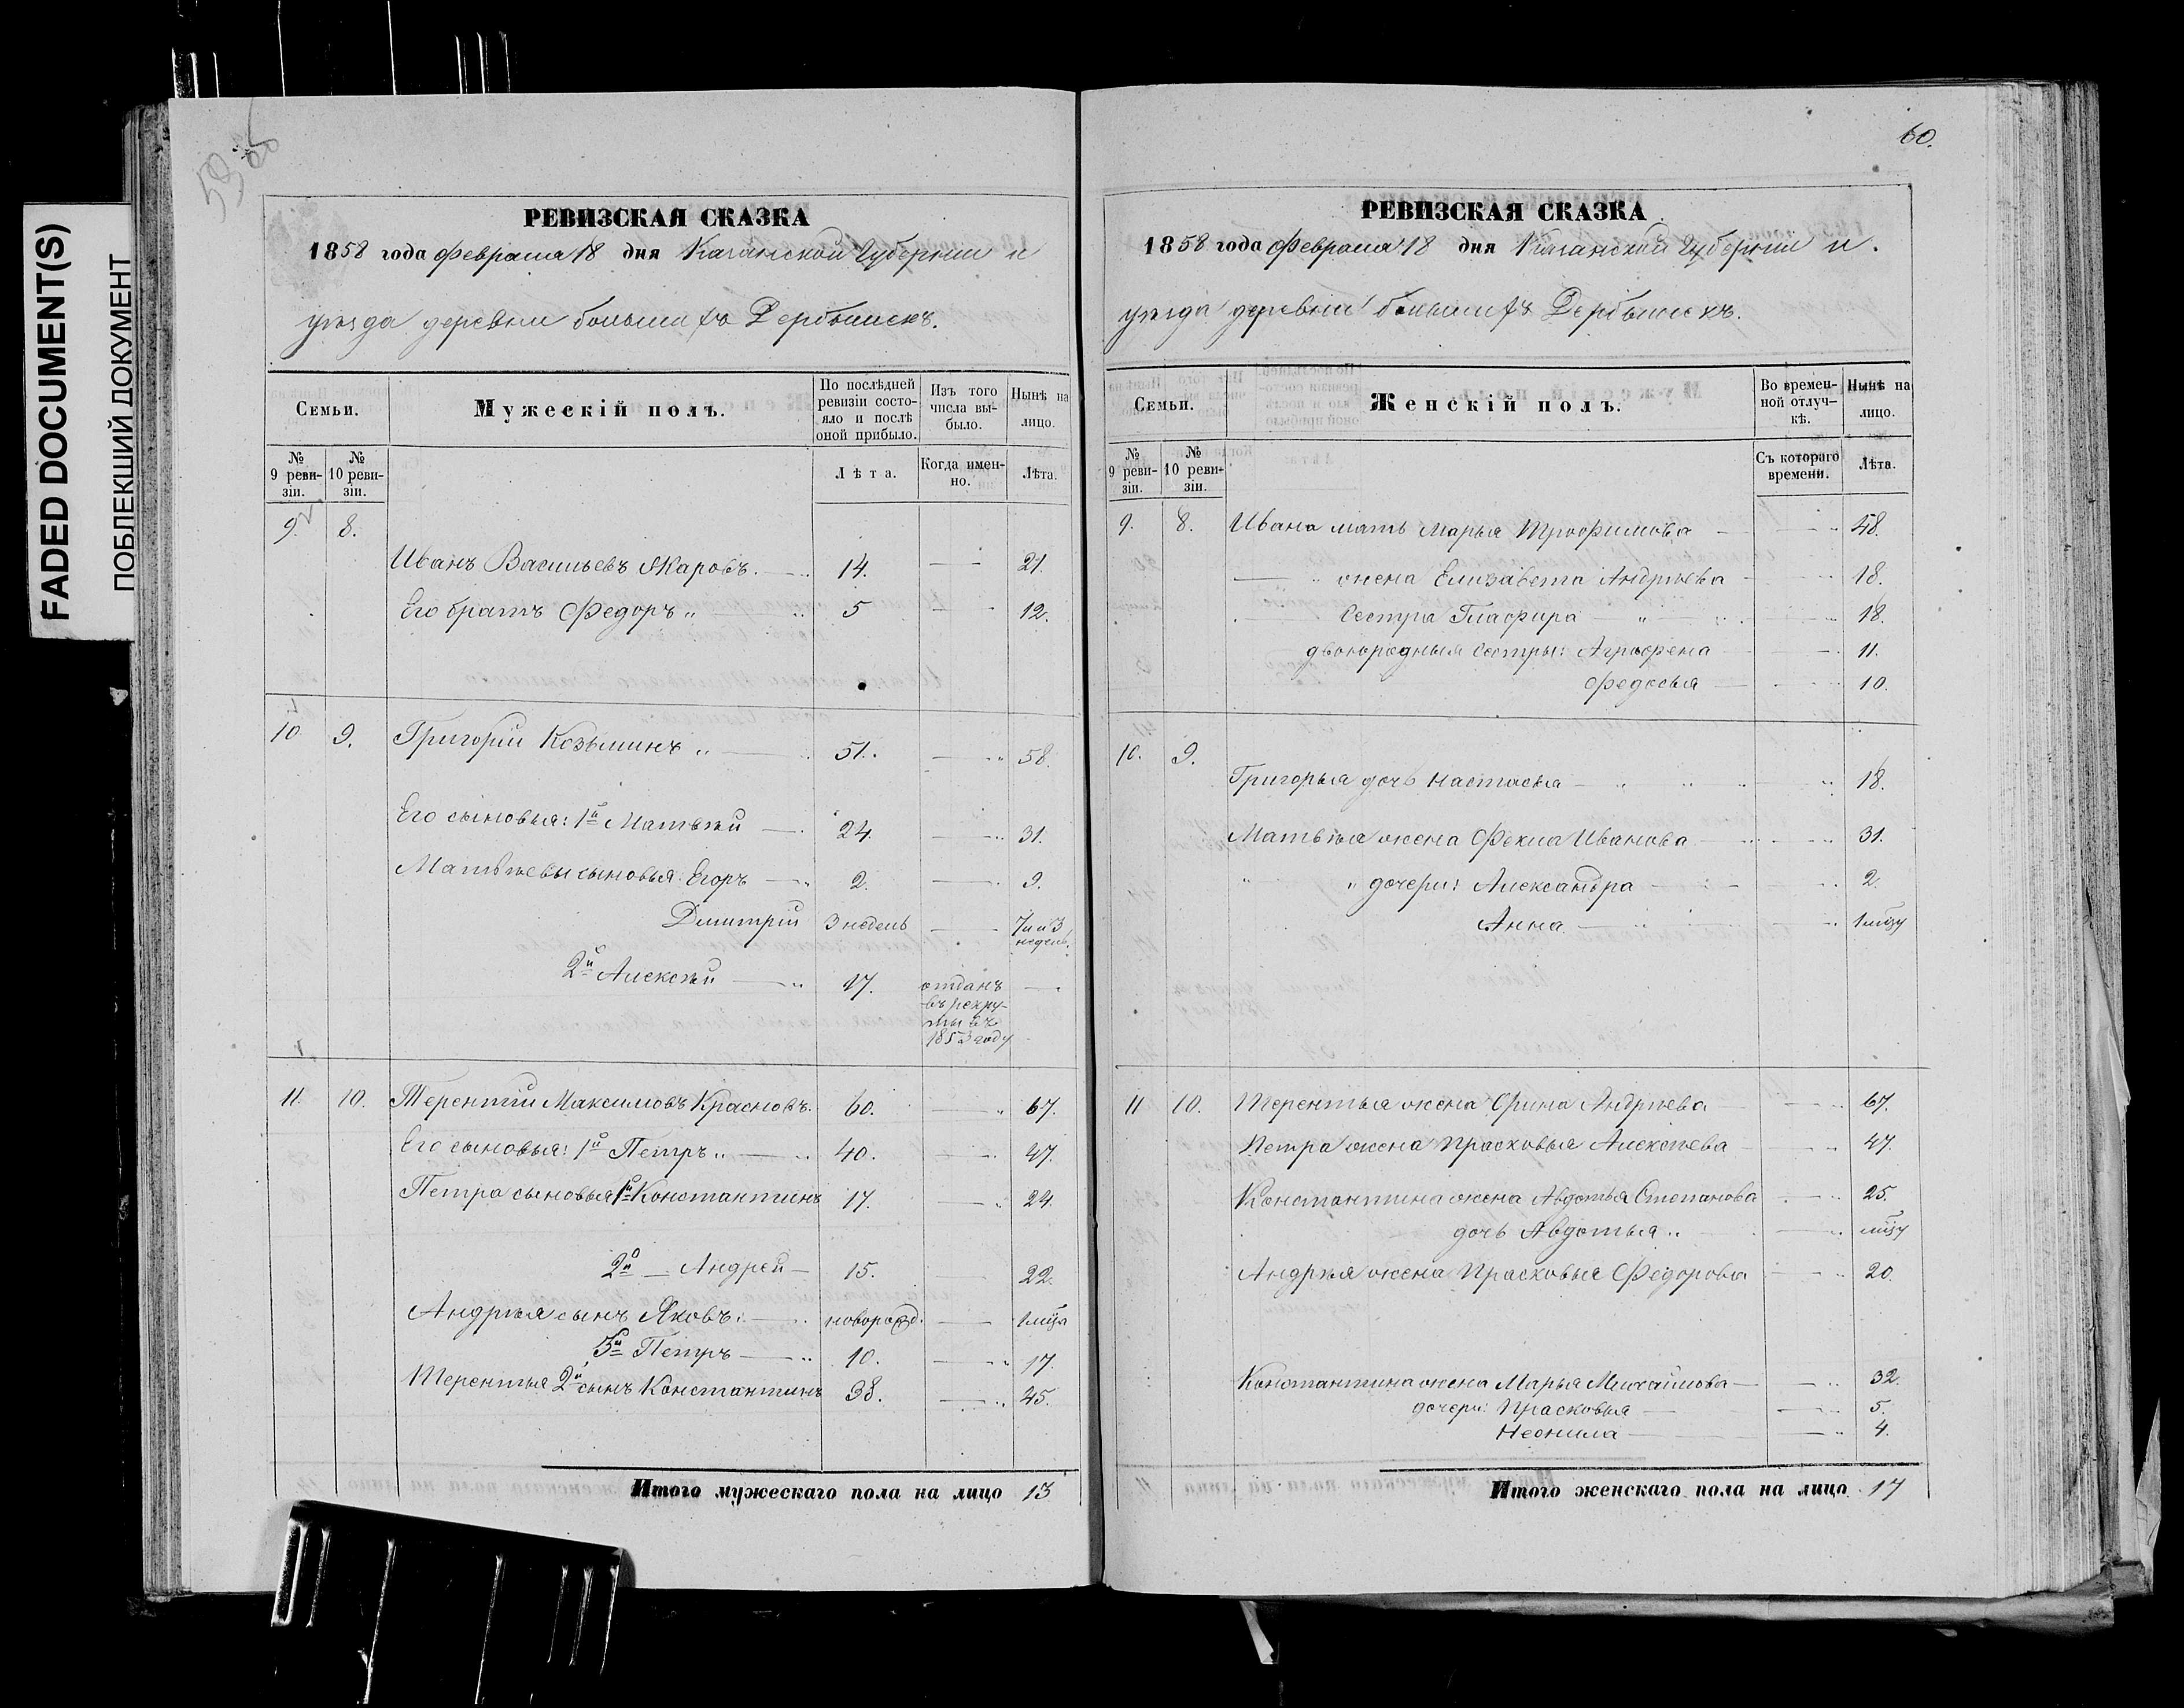 FADED DOCUMENT(S)
ПОБЛЕКШИЙ ДОКУМЕНТ
РЕВИЗСКАЯ СКАЗКА
1858 года Февраля 18 дня Казанской Губернии и
уѣзда деревни большихъ Дербышекъ.
Семьи.
Мужескій полъ.
По послѣдней ревизіи состояло и послѣ оной прибыло.
Изъ того числа выбыло.
Нынѣ на лицо.
№ 9 ревизіи.
№ 10 ревизіи.
Лѣта.
Когда именно.
Лѣта.
9. 8.
Иванъ Васильевъ Жаровъ. 14. 21.
Его братъ Федоръ 5 12.
10 9. Григорій Козьминъ 51. 58.
Его сыновья: 1й Матвѣй 24. 31.
Матвѣевы сыновья: Егоръ 2. 9.
Дмитрій 3 недель 7 и 3 недель.
2й Алексѣй 17. отданъ
въ рекру-
ты въ
1853 году
11. 10. Терентій Максимовъ Красновъ. 60. 67.
Его сыновья: 1й Петръ 40. 47.
Петра сыновья 1й Константинъ 17. 24.
2й Андрей 15. 22.
Андрѣя сынъ Яковъ: новорожд. 1 мѣца
3й Петръ 10. 17.
Терентья 2й сынъ Константинъ 38. 45.
Итого мужескаго пола на лицо 13
60.
РЕВИЗСКАЯ СКАЗКА
1858 года Февраля 18 дня Казанской Губерніи и.
уѣзда деревни большихъ Дербышекъ.
Семьи.
Женскій полъ.
Во временной отлучкѣ.
Нынѣ на лицо.
№ 9 ревизіи.
№ 10 ревизіи.
Съ котораго времени.
Лѣта.
9. 8. Ивана мать Марья Трофимова 48.
жена Елизавета Андрѣева 18.
Сестра Глафира 18.
двоюродныя сестры: Аграфена 11.
Федосья 10.
10. 9.
Григорья дочь Настасья 18.
Матвѣя жена Фекла Иванова 31.
дочери: Александра 2
Анна 1 мѣцу
11 10. Терентья жена Орина Андрѣева 67.
Петра жена Прасковья Алексѣева 47.
Константина жена Авдотья Степанова 25.
дочь Авдотья мѣцу
Андрѣя жена Прасковья Федорова 20.
Константина жена Марья Михайлова 32.
дочери: Прасковья 5.
Неонила 4.
Итого женскаго пола на лицо 17